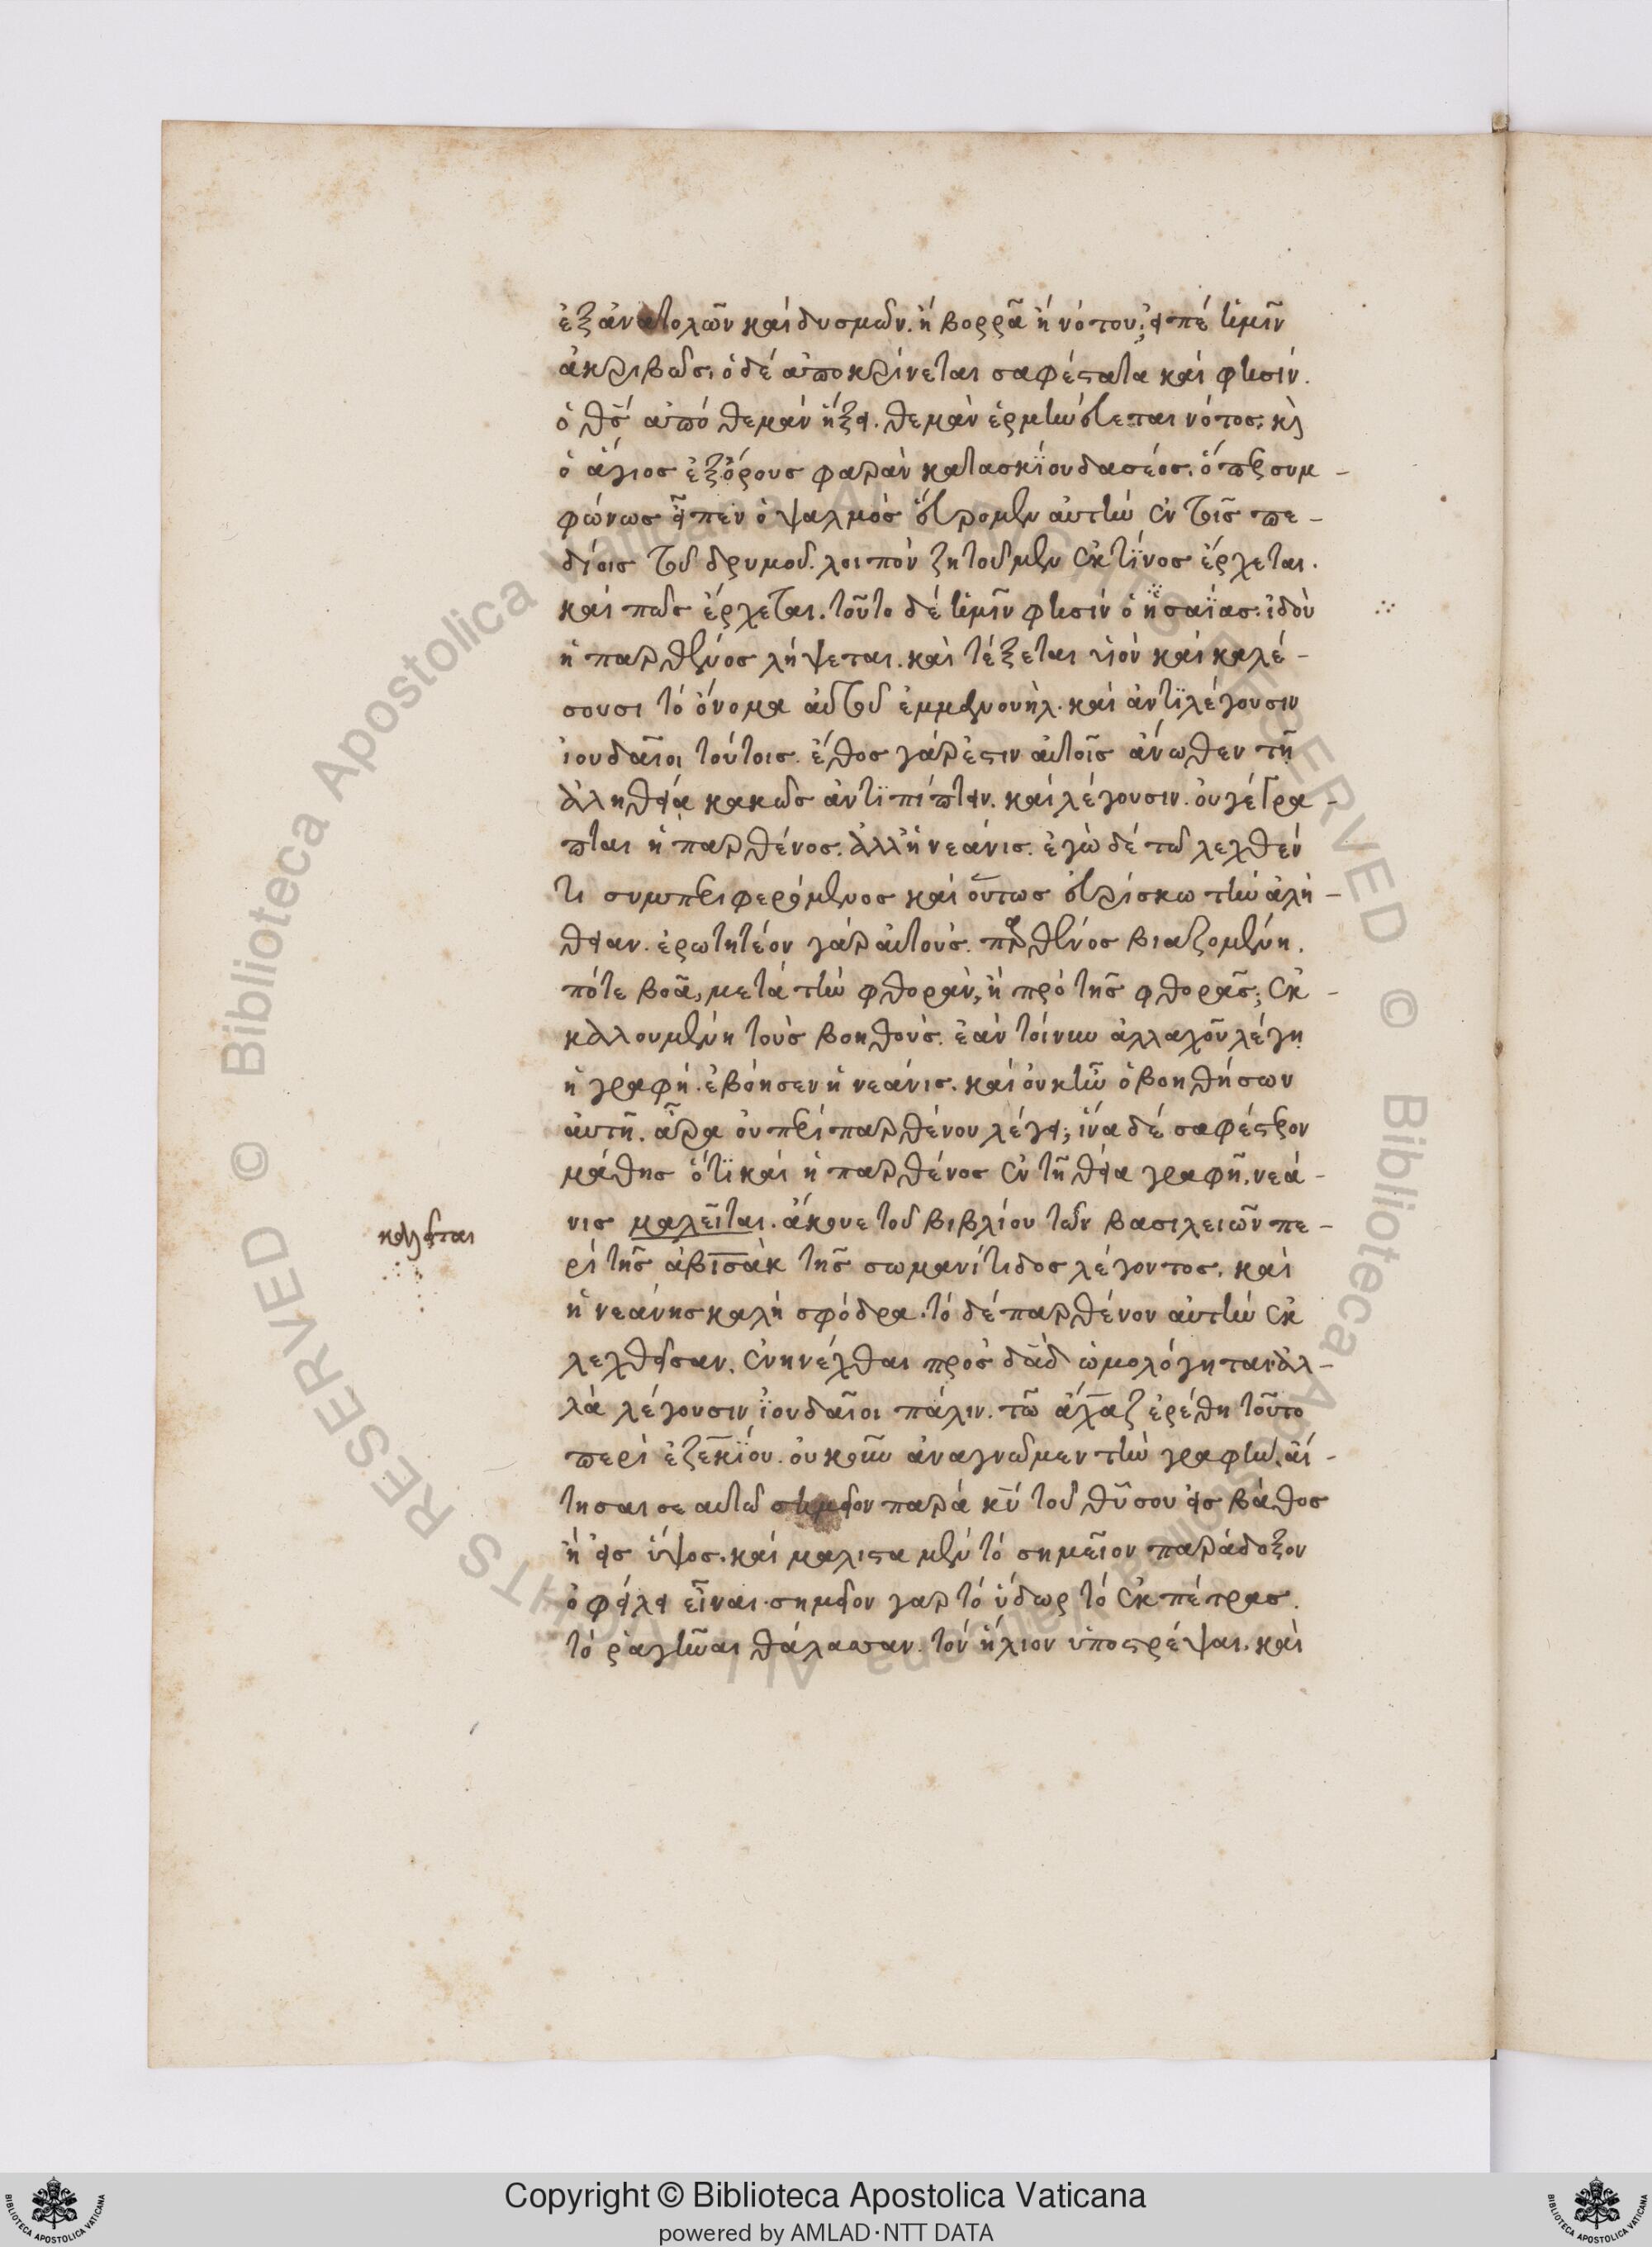 ἐξ ἀνατολῶν καὶ δυσμῶν. ἢ βορρᾶ ἢ νότου; εἰπέ ἡμῖν
ἀκριβῶς. ὁ δέ ἀποκρίνεται σαφέστατα καί φησίν.
ὁ θς ἀπό θεμάν ἥξει. θεμὰν ἑρμηνεύεται νότος. κὶ
ὁ ἅγιος ἐξ ὄρους φαρὰν κατασκϊου δασέος. ὅπερ συμ-
φώνως εἶπεν ὁ ψαλμὸς εὕρομεν αὐτὴν ἐν τοῖς πε-
δίοις τοῦ δρυμοῦ. λοιπόν ζητοῦμεν ἐκ τίνος ἔρχεται.
καί πῶς ἔρχεται. τοῦτο δέ ἡμῖν φησίν ὁ ἡσαΐας. ἰδοὺ
ἡ παρθένος λήψεται. καὶ τέξεται υἱόν καί καλέ-
σουσι τό ὄνομα αὐτοῦ ἐμμανουὴλ. καὶ ἀντϊλέγουσιν
ἰουδαῖοι τούτοις. ἔθος γάρ ἐστιν αὐτοῖς ἄνωθεν τῇ
ἀληθείᾳ κακῶς ἀντϊπίπτειν. καί λέγουσιν. οὐ γέγρα-
πται ἡ παρθένος. ἀλλ' ἡ νεάνις. ἐγὼ δέ τῶ λεχθέν
τι συμπεριφερόμενος καί οὕτως εὑρίσκω τὴν ἀλή-
θειαν. ἐρωτητέον γάρ αὐτούς. παρθένος βιαζομένη.
πότε βοᾶ, μετά τὴν φθοράν, ἢ πρό τῆς φθορᾶς; ἐκ-
καλουμένη τοὺς βοηθούς. ἐὰν τοίνυν ἀλλαχοῦ λέγῃ
ἡ γραφή. ἐβόησεν ἡ νεάνις. καί οὐκ ἦν ὁ βοηθήσων
αὐτῇ. ἆρα οὐ περί παρθένου λέγει; ἵνα δέ σαφέστερον
μάθῃς ὅτϊ καί ἡ παρθένος ἐν τῇ θείᾳ γραφῇ. νεά-
κα&λεῖται
νις μαλεῖται. ἄκουε τοῦ βιβλίου τῶν βασιλειῶν πε-
ρὶ τῆς ἀβισὰκ τῆς σωμανίτιδος λέγοντος. καί
ἡ νεάνης καλὴ σφόδρα. τό δέ παρθένον αὐτὴν ἐκ
λεχθεῖσαν. ἐνηνέχθαι πρός δαδ ὡμολόγηται ἀλ-
λὰ λέγουσιν ἰουδαῖοι πάλιν. τῶ ἄχαζ ἐρέθη τοῦτο
περὶ ἐζεκίου. οὐκοῦν ἀναγνῶμεν τὴν γραφὴν. αἴ-
τησαι σεαυτῶ σημεῖον παρά κυ τοῦ θυ σου εἰς βάθος
ἢ εἰς ὕψος. καί μαλιστα μέν τό σημεῖον παράδοξον
ὀφείλει εἶναι. σημεῖον γαρ τό ὕδωρ τό ἐκ πέτρας.
τό ῥαγῆναι θάλασσαν. τόν ἥλιον ὑποστρέψαι. καὶ
Copyright © Biblioteca Apostolica Vaticana
powered by AMLAD·NTT DATA